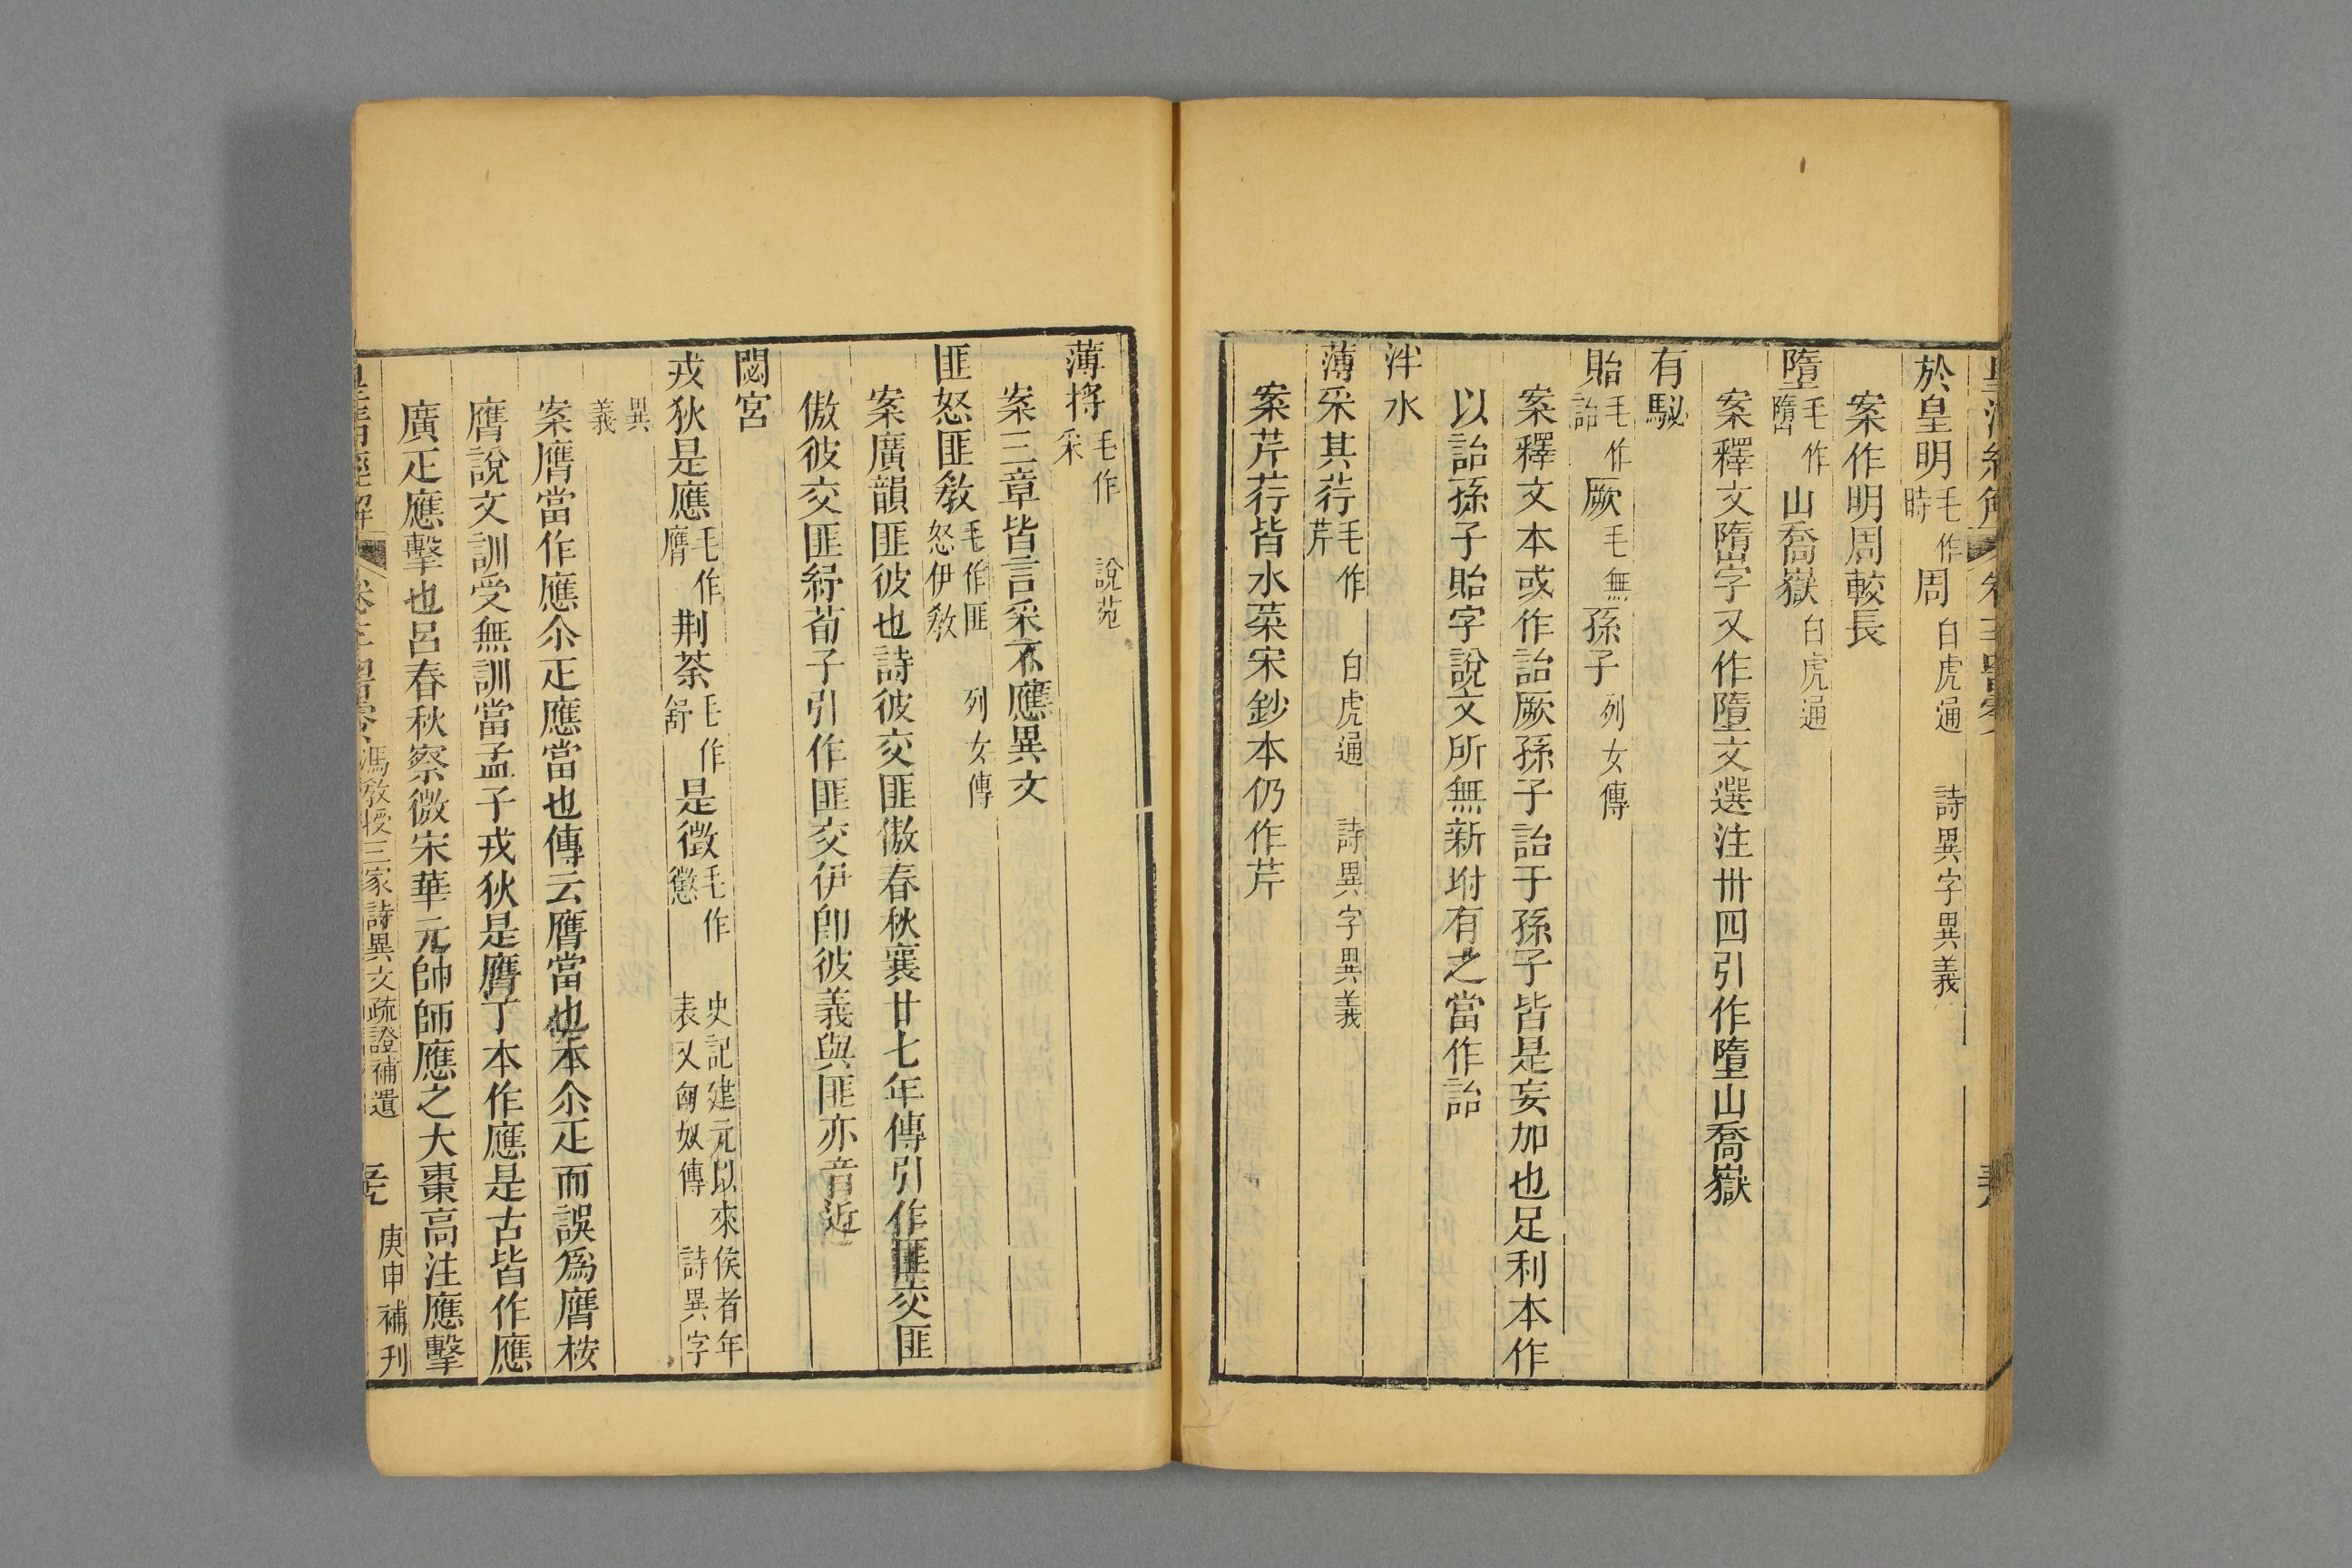 於皇明毛作時周白虎通 詩異字異義
案作明周較長
墮毛作隋山山喬嶽白虎通
案釋文隋山字又作墮文選注卌四引作墮山喬嶽
有駜
貽毛作詒厥毛無孫子列女傳
案釋文本或作詒厥孫子詒于孫子皆是妄加也足利本作
以詒孫子貽字說文所無新坿有之當作詒
泮水
薄采其荇毛作芹 白虎通 詩異字異義
案芹荇皆水菜宋鈔本仍作芹
薄捋毛作采 說苑
案三章皆言采不應異文
匪怒匪敎毛作匪怒伊敎 列女傳
案廣韻匪彼也詩彼交匪傲春秋襄廿七年傳引作匪交匪
傲彼交匪紓荀子引作匪交伊卽彼義與匪亦音近
閟宮
戎狄是應毛作膺荆荼毛作舒是徵毛作懲 史記建元以來侯者年表又匈奴傳 詩異字
異義
案膺當作應尒疋應當也傳云膺當也本尒疋而誤爲膺桉
膺說文訓受無訓當孟子戎狄是膺丁本作應是古皆作應
廣疋應擊也呂春秋察微宋華元帥師應之大棗高注應擊
馮敎授三家詩異文疏證補遺
庚申補刊